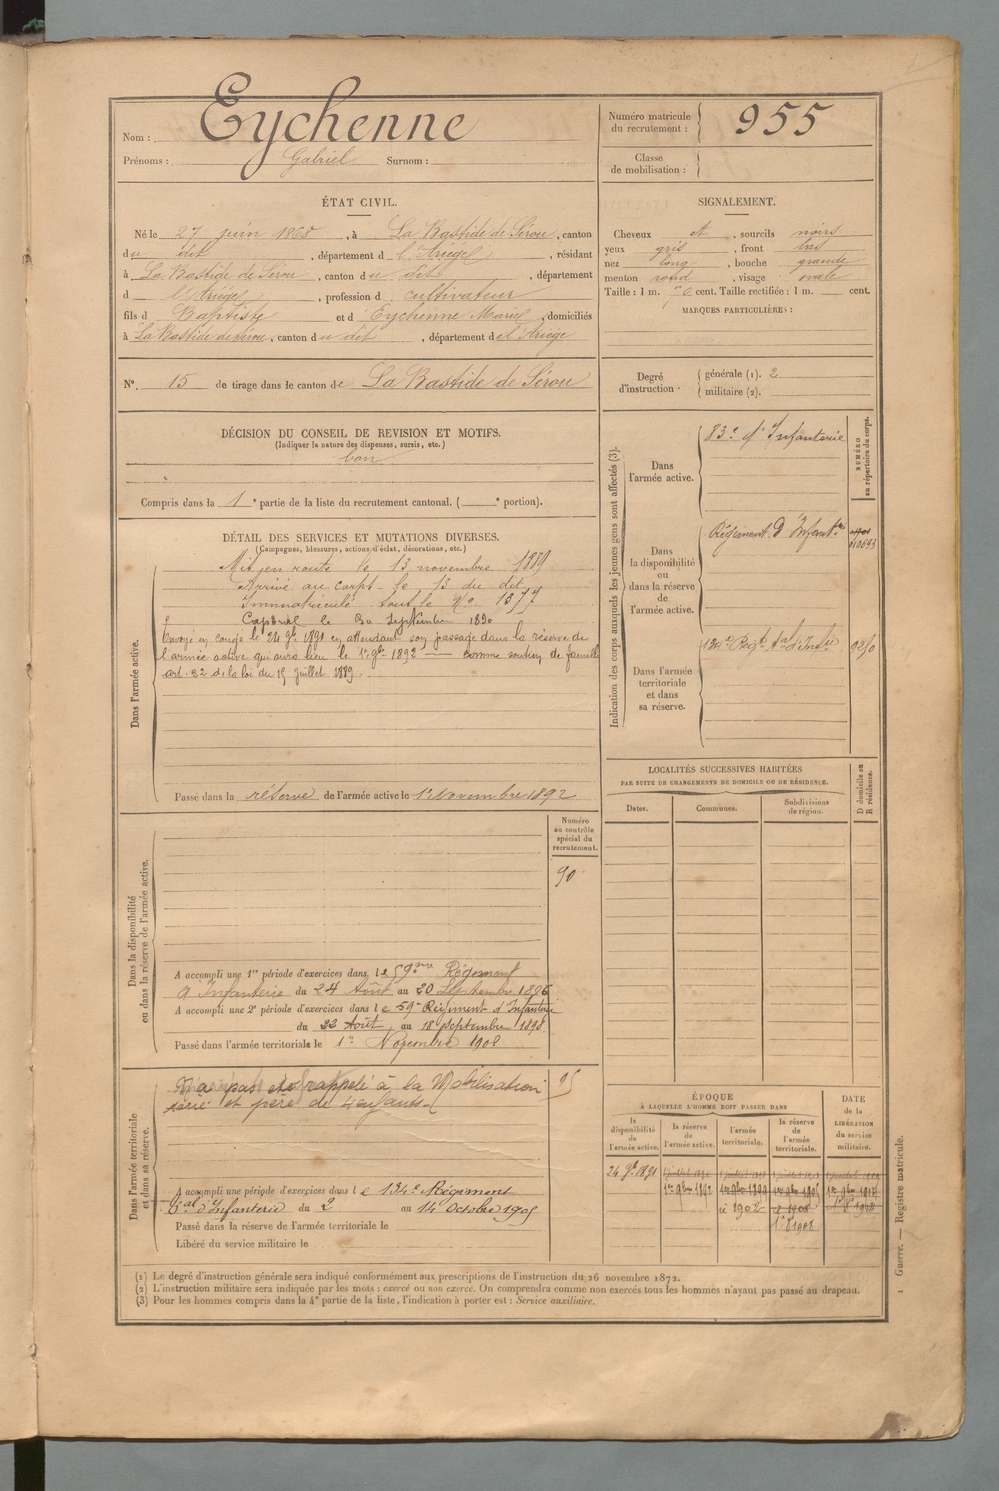 Nom : Eychenne
Prénoms : Gabriel Surnom :
Numéro matricule du recrutement : 955
Classe de mobilisation :
ÉTAT CIVIL.
Né le 27 juin 1868, à La Bastide de Sérou, canton
du dit, département d l'Ariège, résidant
à La Bastide de Sérou, canton du dit, département
d l'Ariège, profession d cultivateur
fils d Baptiste et d Eychenne Marie, domiciliés
à La Bastide de Sérou, canton du dit, département de l'Ariège
N°. 15 de tirage dans le canton de La Bastide de Sérou
SIGNALEMENT.
Cheveux et, sourcils noirs
yeux gris, front bas
nez long, bouche grande
menton rond, visage ovale
Taille : 1 m. 70 cent. Taille rectifiée : 1 m. cent.
MARQUES PARTICULIÈRES :
Degré d'instruction :
générale (1). 2
militaire (2).
DÉCISION DU CONSEIL DE REVISION ET MOTIFS.
(Indiquer la nature des dispenses, sursis, etc.)
bon
Compris dans la 1e partie de la liste du recrutement cantonal. ( e portion).
DÉTAIL DES SERVICES ET MUTATIONS DIVERSES.
(Campagnes, blessures, actions d'éclat, décorations, etc.)
Dans l'armée active.
Mis en route le 13 novembre 1889
Arrivé au corps le 13 du dit
Immatriculé sous le N° 1377
Caporal le 30 Septembre 1890
Envoyé en congé le 24 9bre 1891 en attendant son passage dans la réserve de
l'armée active qui aura lieu le 1er 9bre 1892 — comme soutien de famille
art. 22 de la loi du 15 juillet 1889.
Passé dans la réserve de l'armée active le 1er Novembre 1892
Indication des corps auxquels les jeunes gens sont affectés (3).
NUMÉRO au répertoire du corps.
Dans l'armée active.
83e d'Infanterie
Dans la disponibilité ou dans la réserve de l'armée active.
Régiment d'Infanterie
010693
Dans l'armée territoriale et dans sa réserve.
134e Régt tal d'Infie
LOCALITÉS SUCCESSIVES HABITÉES
PAR SUITE DE CHANGEMENTS DE DOMICILE OU DE RÉSIDENCE.
Dates. Communes. Subdivisions de région. D domicile ou R résidence.
Dans la disponibilité ou dans la réserve de l'armée active.
Numéro au contrôle spécial du recrutement.
90
A accompli une 1re période d'exercices dans le 59me Régiment
d'Infanterie du 24 Août au 20 Septembre 1896
A accompli une 2e période d'exercices dans le 59e Régiment d'Infanterie
du 22 Août au 18 septembre 1898
Passé dans l'armée territoriale le 1er Novembre 1902
Dans l'armée territoriale et dans sa réserve.
N'a pas été rappelé à la Mobilisation
marié et père de 4 enfants
A accompli une période d'exercices dans le 134e Régiment
tal d'Infanterie du 2 au 14 Octobre 1905
Passé dans la réserve de l'armée territoriale le
Libéré du service militaire le
ÉPOQUE
À LAQUELLE L'HOMME DOIT PASSER DANS
la disponibilité de l'armée active.
la réserve de l'armée active.
l'armée territoriale.
la réserve de l'armée territoriale.
DATE de la LIBÉRATION du service militaire.
24 9bre 1891
1er 9bre 1892 1er 9bre 1899
1902 1908
1908
(1) Le degré d'instruction générale sera indiqué conformément aux prescriptions de l'instruction du 26 novembre 1872.
(2) L'instruction militaire sera indiquée par les mots : exercé ou non exercé. On comprendra comme non exercés tous les hommes n'ayant pas passé au drapeau.
(3) Pour les hommes compris dans la 4e partie de la liste, l'indication à porter est : Service auxiliaire.
1 Guerre. — Registre matricule.